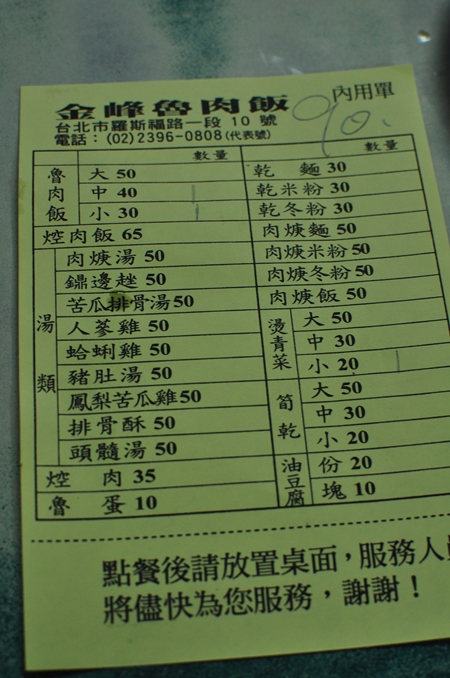 金峰魯肉飯
內用單
90.
台北市羅斯福路一段 10 號
電話：(02)2396-0808(代表號)
數量
數量
魯肉飯
大 50
中 40
小 30
焢肉飯 65
湯類
肉焿湯 50
鼎邊趖 50
苦瓜排骨湯50
人蔘雞 50
蛤蜊雞 50
豬肚湯 50
鳳梨苦瓜雞50
排骨酥 50
頭髓湯 50
焢 肉 35
魯 蛋 10
乾 麵 30
乾米粉 30
乾冬粉 30
肉焿麵 50
肉焿米粉 50
肉焿冬粉 50
肉焿飯 50
燙青菜
大 50
中 30
小 20
筍乾
大 50
中 30
小 20
油豆腐
份 20
塊 10
點餐後請放置桌面，服務人
將儘快為您服務，謝謝！